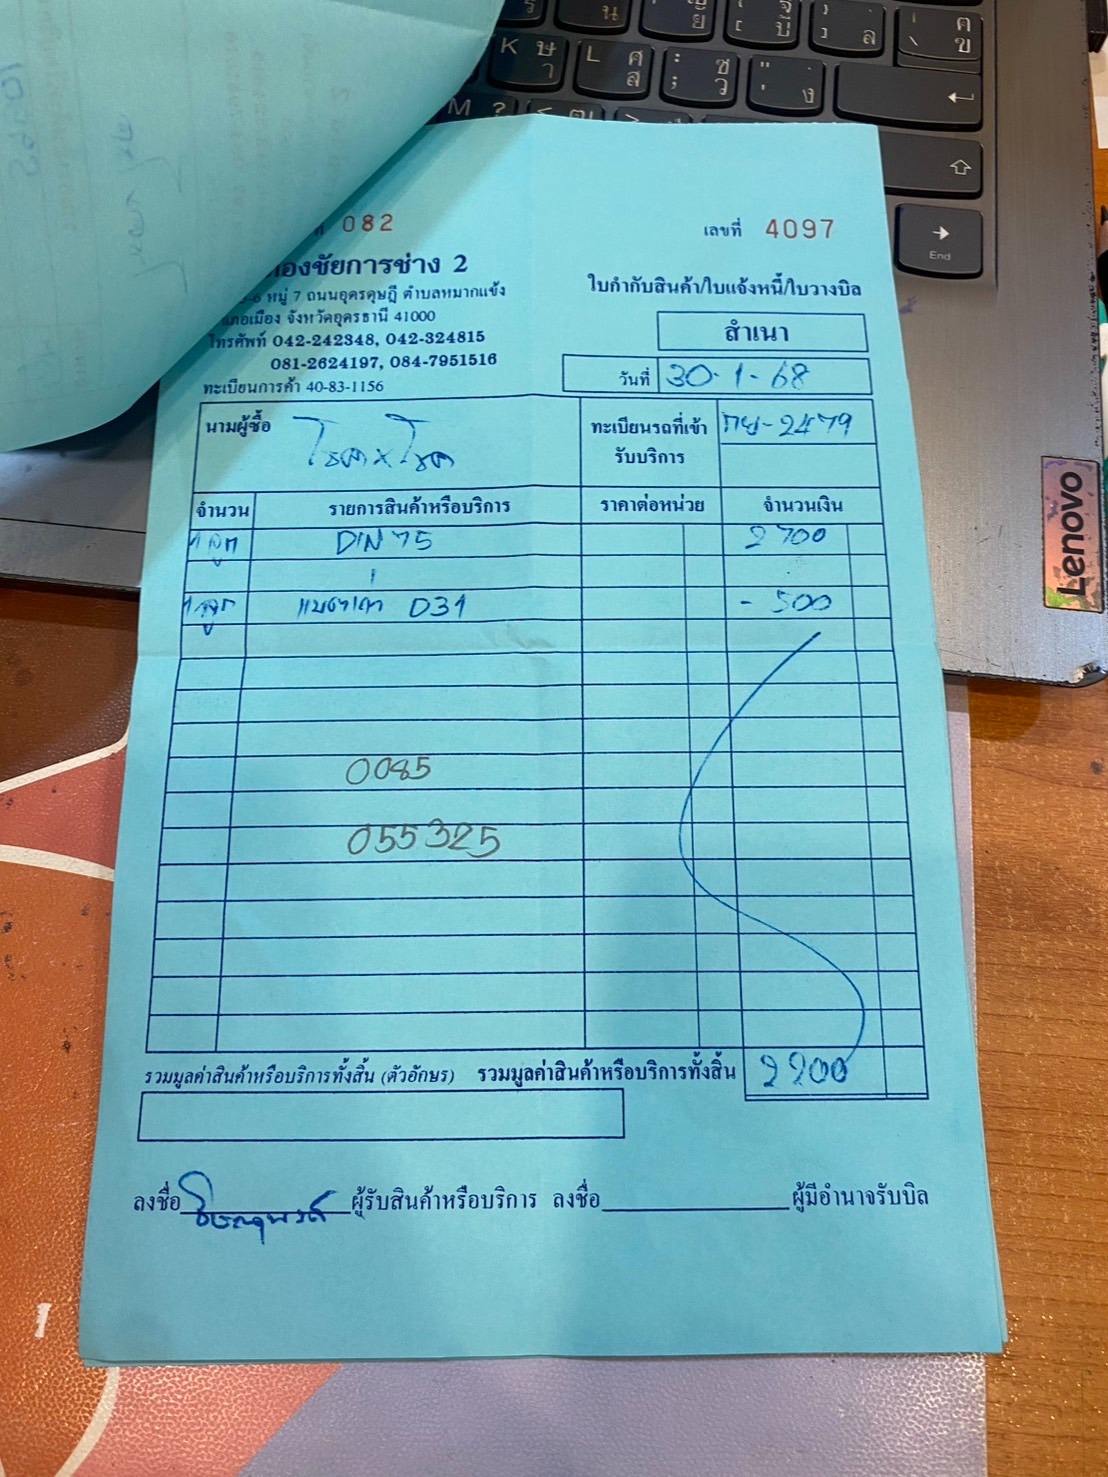 082
เลขที่ 4097
องชัยการช่าง 2
หมู่ 7 ถนนอุดรดุษฎี ตำบลหมากแข้ง
เมือง จังหวัดอุดรธานี 41000
โทรศัพท์ 042-242348, 042-324815
081-2624197, 084-7951516
ทะเบียนการค้า 40-83-1156
ใบกำกับสินค้า/ใบแจ้งหนี้/ใบวางบิล
สำเนา
วันที่ 30-1-68
นามผู้ซื้อ
ทะเบียนรถที่เข้า -2479
รับบริการ
จำนวน รายการสินค้าหรือบริการ ราคาต่อหน่วย จำนวนเงิน
1 ลูก DIN 75 2700
1 ลูก แบตเก่า D31 - 500
0085
055325
รวมมูลค่าสินค้าหรือบริการทั้งสิ้น (ตัวอักษร) รวมมูลค่าสินค้าหรือบริการทั้งสิ้น 2200
ลงชื่อ ผู้รับสินค้าหรือบริการ ลงชื่อ ผู้มีอำนาจรับบิล
Lenovo
End